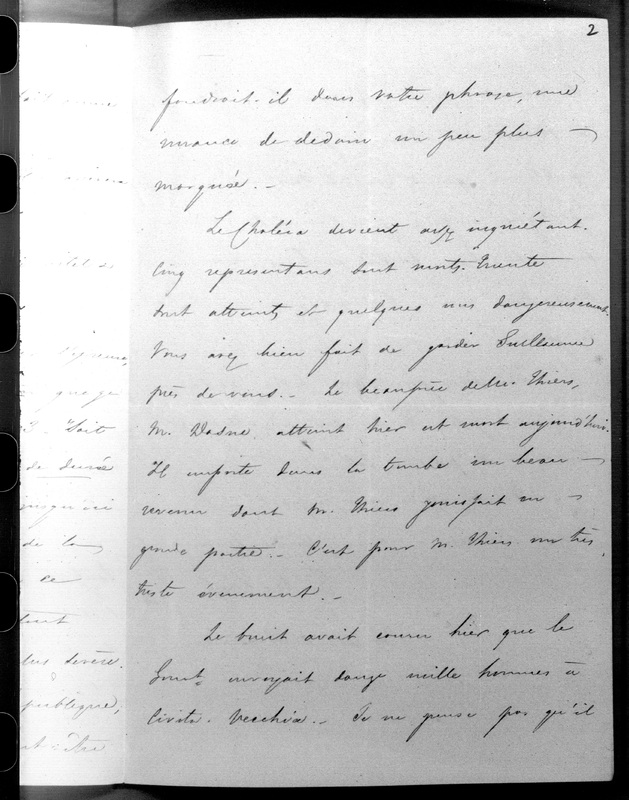 2
faudrait-il dans votre phrase, une
nuance de dédain un peu plus
marquée. -
Le Choléra devient assez inquiétant.
Cinq représentans sont morts. Trente
sont atteints et quelques uns dangereusement.
Vous avez bien fait de garder Guillaume
près de vous. - Le beaupère de Mr. Thiers,
M. Dosne, atteint hier est mort aujourd'hui.
Il emporte dans la tombe un beau
revenu dont M. Thiers jouissait en
grande partie. - C'est pour M. Thiers un très
triste évènement. -
Le bruit avait couru hier que le
Gouvt envoyait douze mille hommes à
Civita-Vecchia. - Je ne pense pas qu'il
que je
de durée
de la
ce
tout
plus sévère.
république,